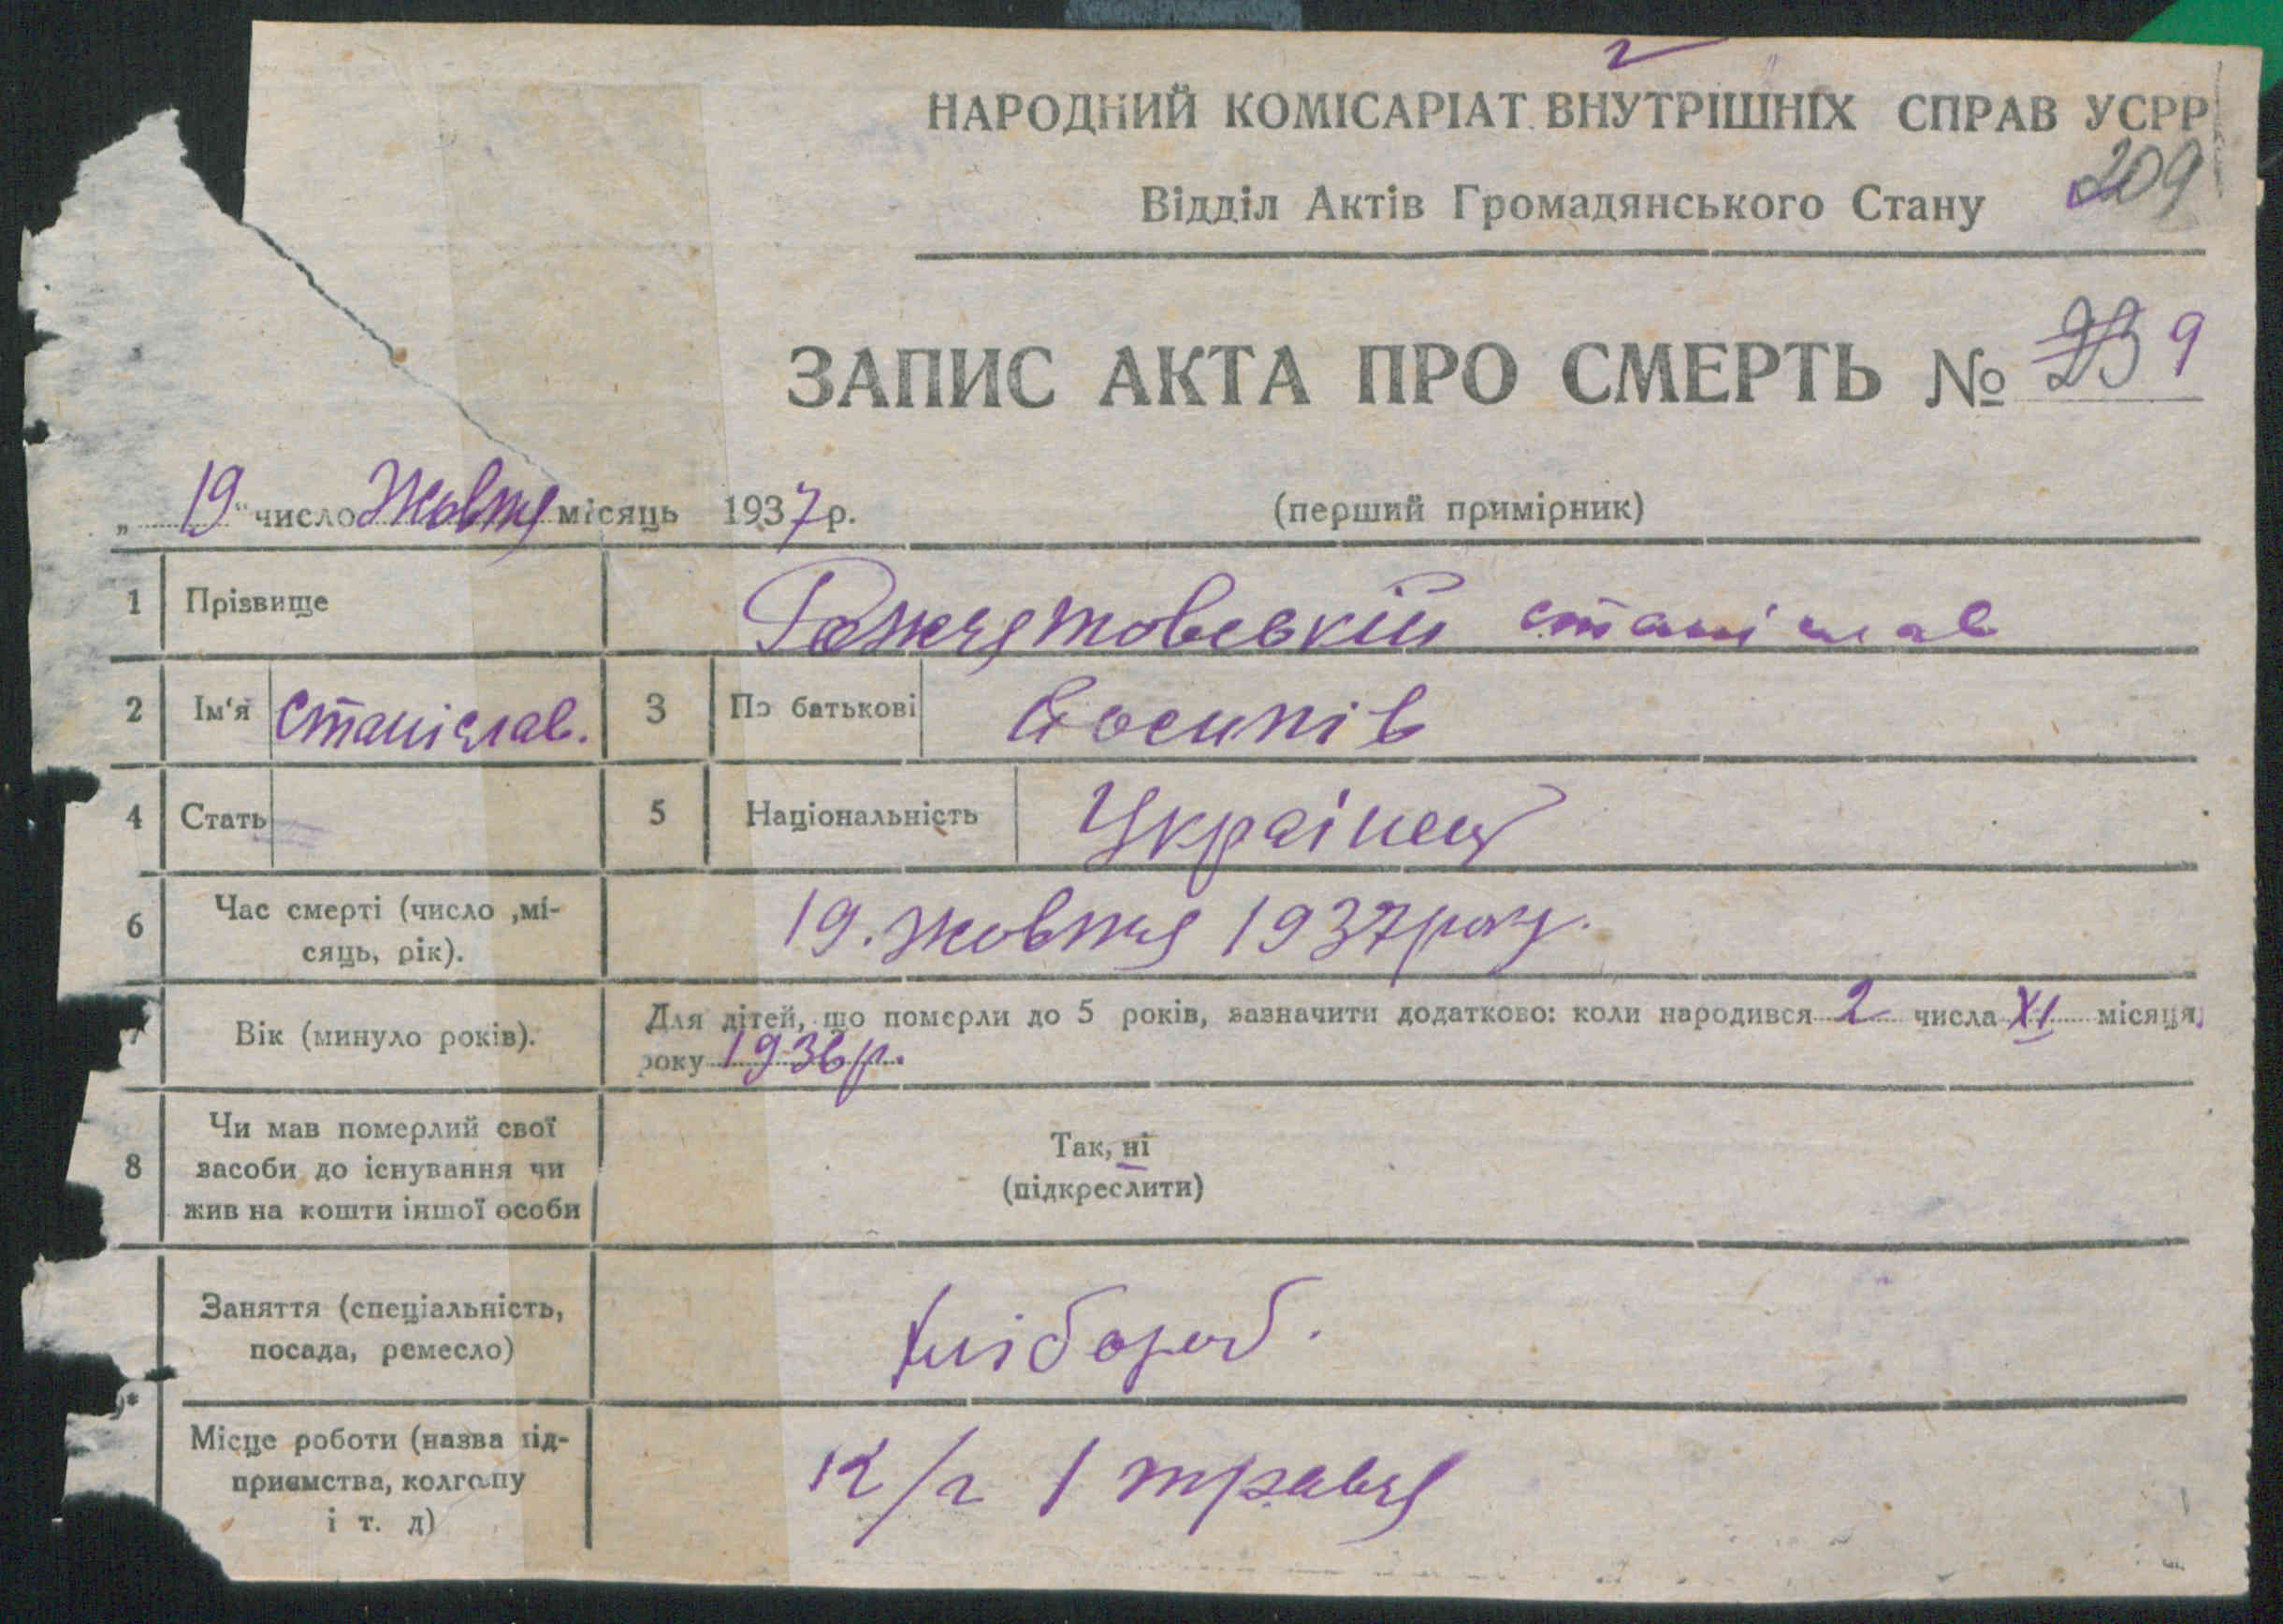 НАРОДНИЙ КОМІСАРІАТ ВНУТРІШНІХ СПРАВ УСРР
209
Відділ Актів Громадянського Стану
ЗАПИС АКТА ПРО СМЕРТЬ № 9
„ 19 “ число Жовтня місяць 1937 р.
(перший примірник)
1 Прізвище станіслав
2 Ім'я Станіслав. 3 По батькові Йосипів
4 Стать 5 Національність Українец
6 Час смерті (число ,мі-
сяць, рік).
19. жовтня 1937 року.
7 Вік (минуло років).
Для дітей, що померли до 5 років, зазначити додатково: коли народився 2 числа XI місяця,
року 1936 р.
8 Чи мав померлий свої
засоби до існування чи
жив на кошти іншої особи
Так, ні
(підкреслити)
Заняття (спеціальність,
посада, ремесло)
хлібороб.
Місце роботи (назва під-
приємства, колгопу
і т. д)
к/г 1 травня